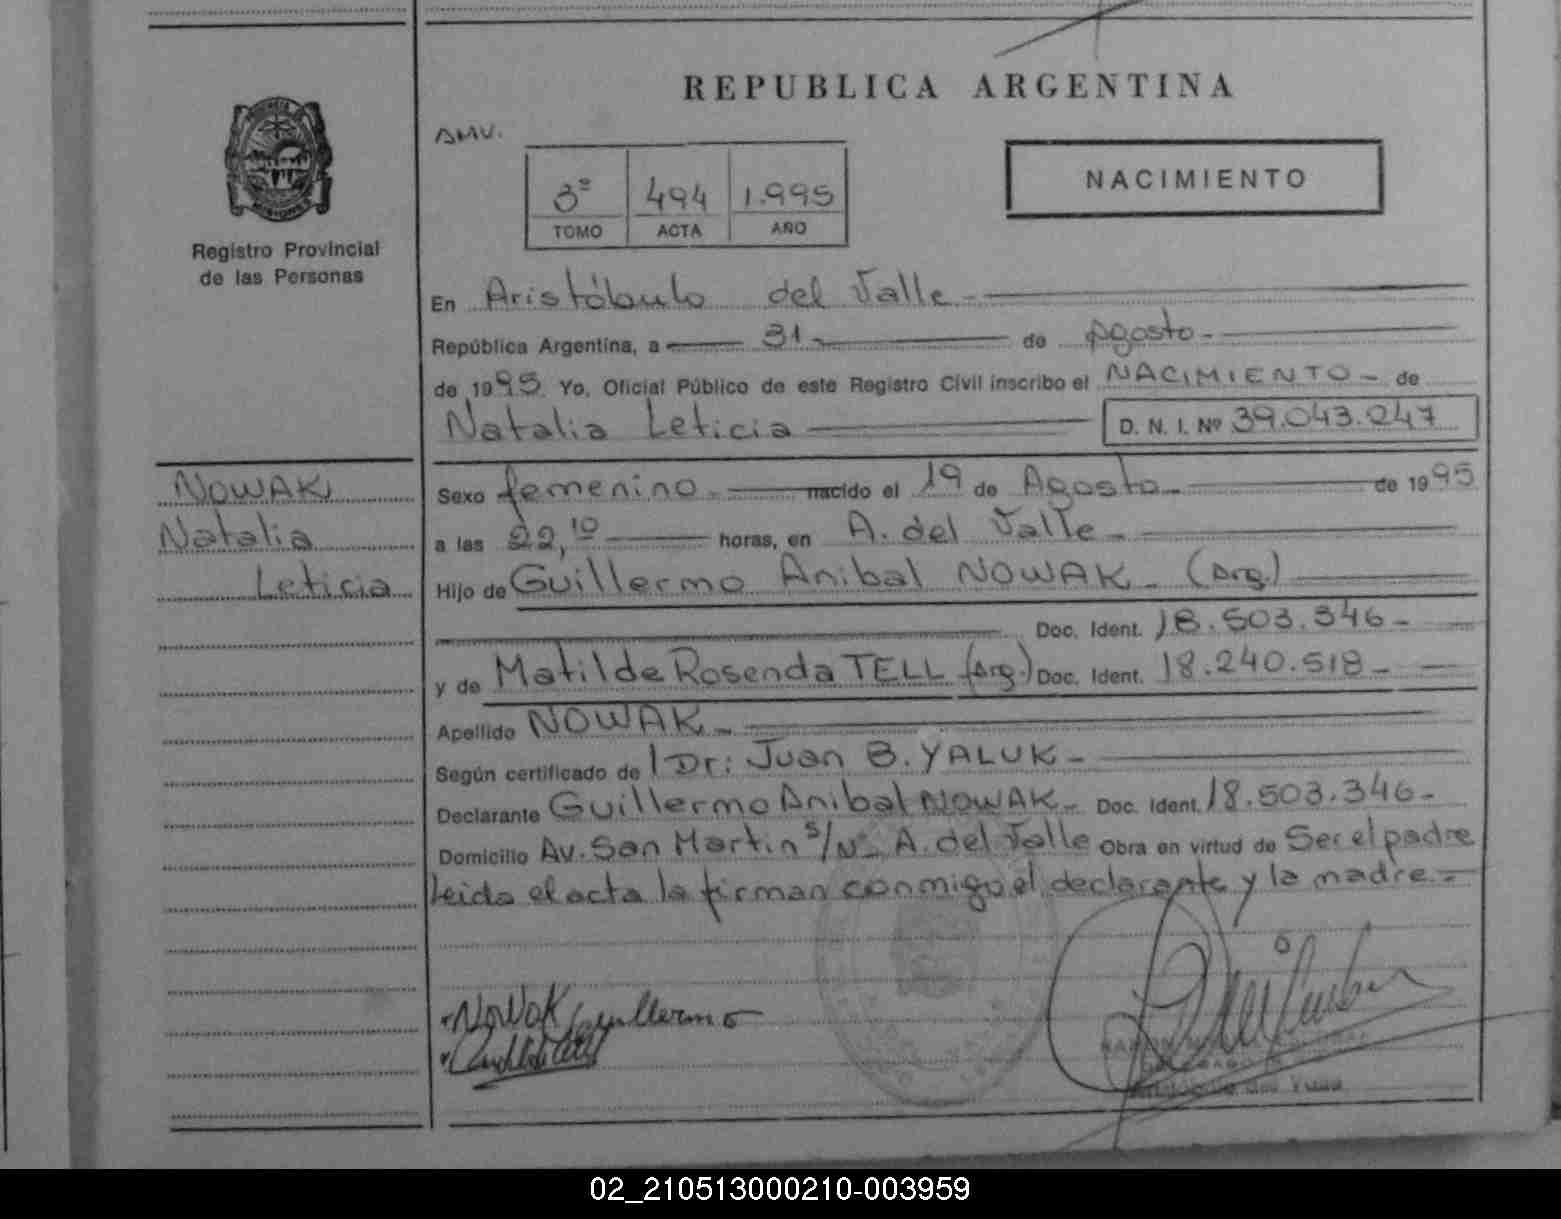 REPUBLICA ARGENTINA
AMV.
3º 494 1.995
TOMO ACTA AÑO
NACIMIENTO
MISIONES
Registro Provincial
de las Personas
En Aristóbulo del Valle.-
República Argentina, a 31 de Agosto.-
de 1995. Yo, Oficial Público de este Registro Civil inscribo el NACIMIENTO.- de
Natalia Leticia
D. N. I. Nº 39.043.247
NOWAK
Natalia
Leticia
Sexo femenino.- nacido el 19 de Agosto.- de 1995
a las 22,10 horas, en A. del Valle.-
Hijo de Guillermo Anibal NOWAK.- (Arg.)
Doc. Ident. 18.503.346.-
y de Matilde Rosenda TELL (Arg.) Doc. Ident. 18.240.518.-
Apellido NOWAK.-
Según certificado de Dr: Juan B. YALUK.-
Declarante Guillermo Anibal NOWAK.- Doc. Ident. 18.503.346.-
Domicilio Av. San Martin s/Nº. A. del Valle Obra en virtud de Ser el padre
Leida el acta la firman conmigo el declarante y la madre.=
Nowak Guillermo
02_210513000210-003959